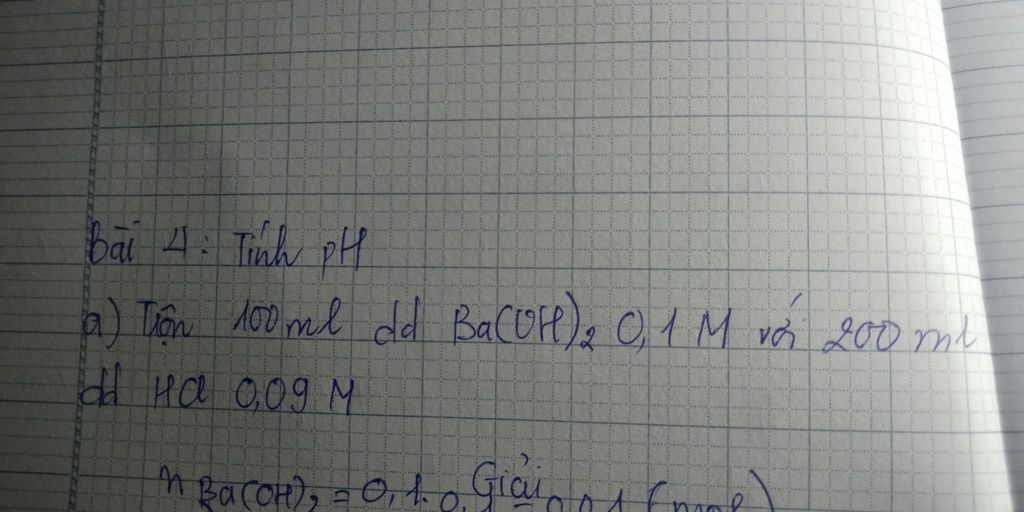 Bài 4: Tính pH
a) Trộn 100 ml dd Ba(OH)₂ 0,1 M với 200 ml
dd HCl 0,09 M
Giải
n Ba(OH)₂ = 0,1. 0, 0,01 (mol)